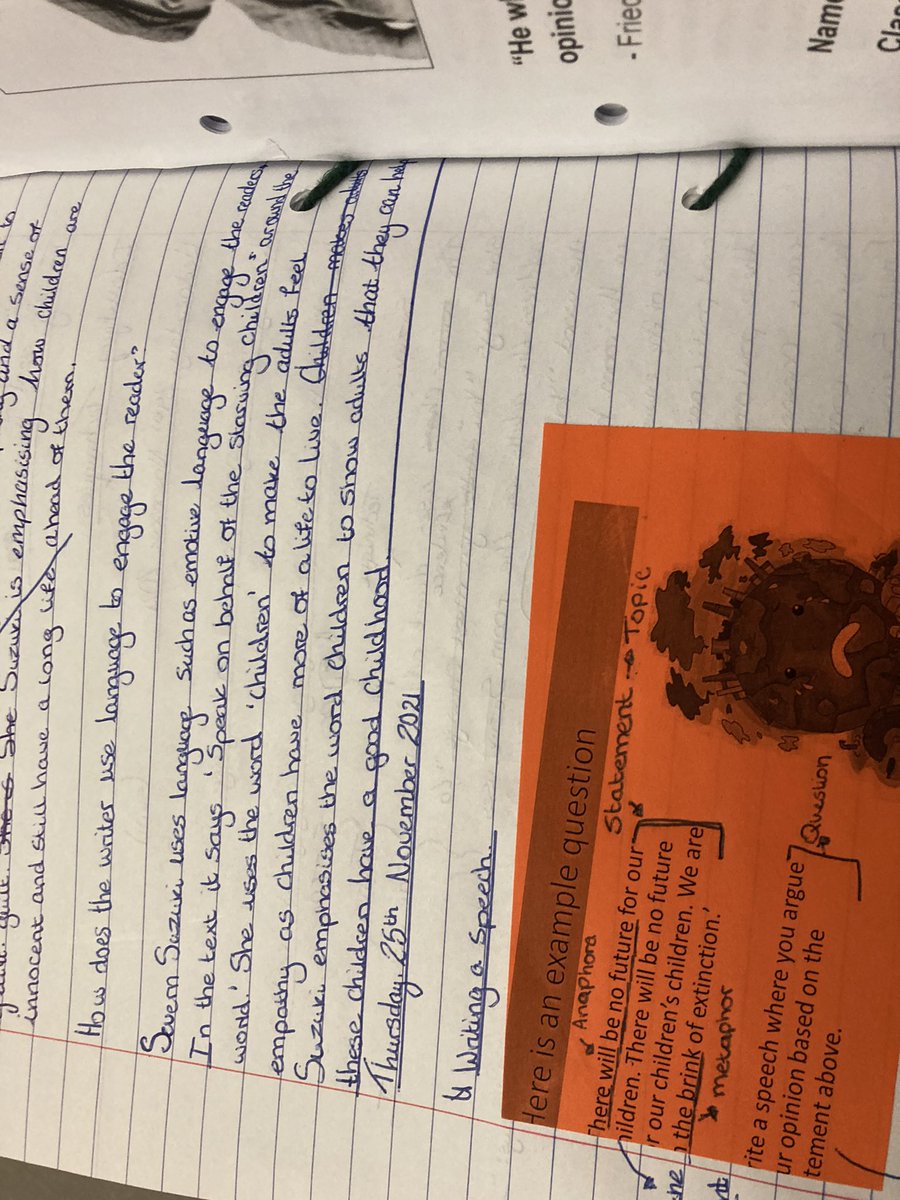 "He w
opinio
- Fried
Name
Clas
to
and a sense of
guilt. She is She Suzuki is emphasising how children are
innocent and still have a long life ahead of them.
How does the writer use language to engage the reader"
Severn Suzuki uses language such as emotive language to engage the readers.
In the text it says 'speak on behalf of the starving children" around the
world.' She uses the word 'children' to make the adults feel
empathy as children have more of a life to live. Children makes adults
Suzuki emphasises the word children to show adults that they can help
these children have a good childhood.
Thursday, 25th November 2021
Writing a speech
Here is an example question
Anaphora
Statement → Topic
There will be no future for our
hildren. There will be no future
r our children's children. We are
n the brink of extinction.'
metaphor
Question
rite a speech where you argue
ur opinion based on the
tement above.
the
nt